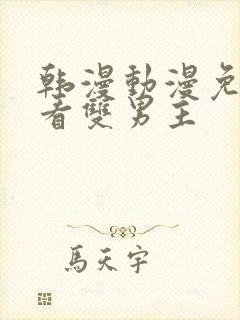 韩漫動漫免
看雙男主
馬天宇